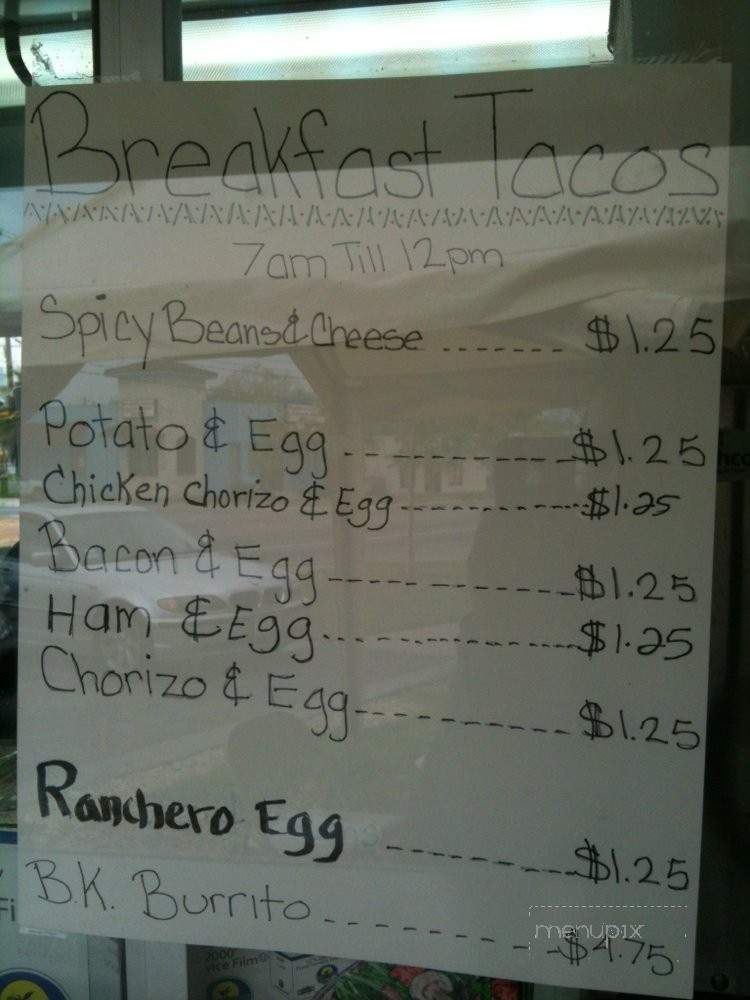 Breakfast Tacos
7am Till 12pm
Spicy Beans & Cheese ------- $1.25
Potato & Egg ------------ $1.25
Chicken Chorizo & Egg ------------ $1.25
Bacon & Egg ------------- $1.25
Ham & Egg ------------- $1.25
Chorizo & Egg ----------- $1.25
Ranchero Egg -------- $1.25
B.K. Burrito --------- $4.75
menupix
Fi
2000'
Film